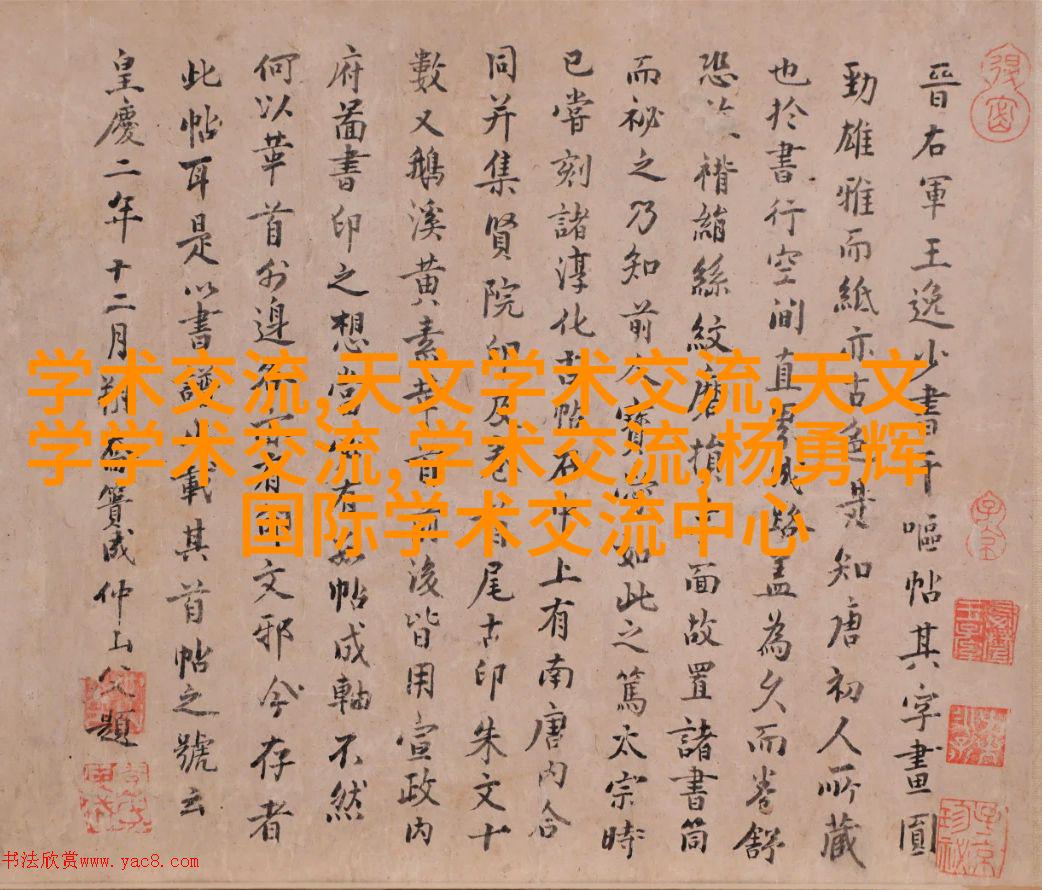 晉右軍王逸少書干嘔帖其字畫圓
勁雄雅而紙亦古色是知唐初人所藏
也於書行空澗直
盖為久而卷舒
恐
褙絹絲紋磨損
面故置諸書筒
而祕之乃知前人寶
如此之篤太宗時
已嘗刻諸淳化古帖
上有南唐内合
同并集賢院印及
首尾古印朱文十
數又鵝溪黄素
首
後皆用宣政内
府圖書印之想
有
帖成軸不然
何以華首外邊
有
文邪今存者
此帖耳是以書譜
載其首帖之號云
皇慶二年十二月
賛成仲山父題
学术交流,天文学术交流,天文
学学术交流,学术交流,杨勇辉
国际学术交流中心
书法欣赏www.yac8.com